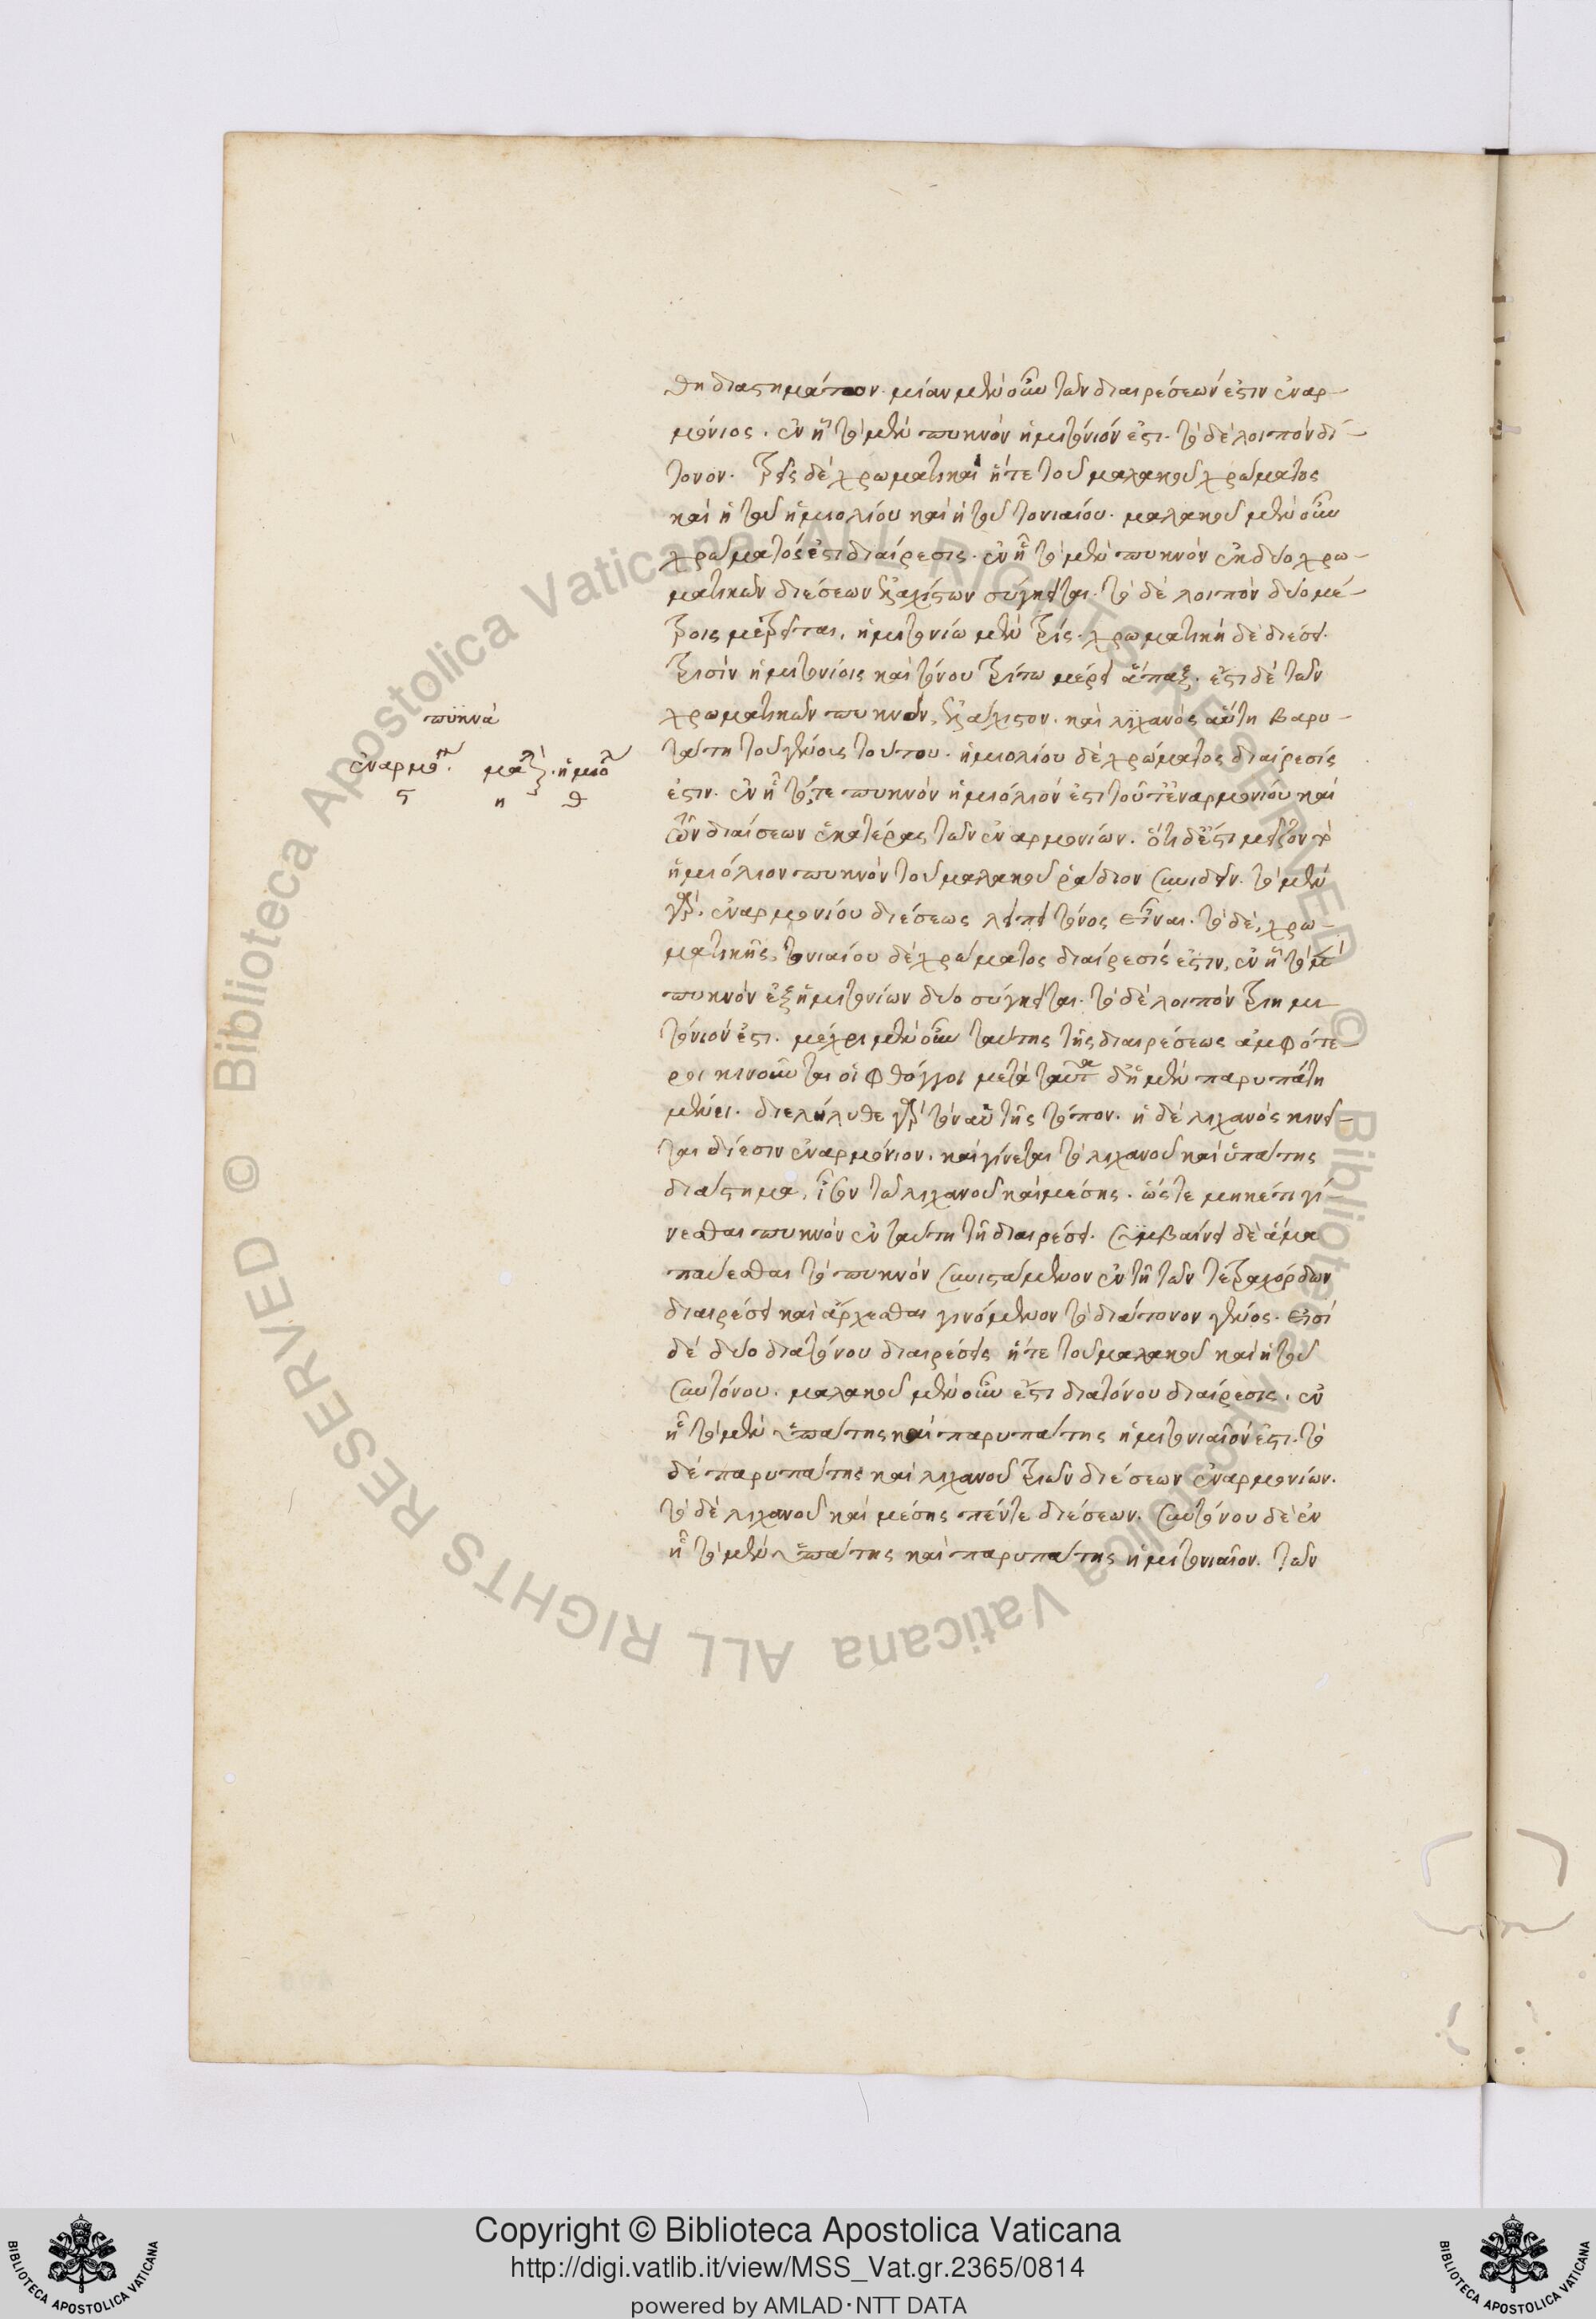 θη διαστημάτων. μίαν μὲν οὖν τῶν διαιρέσεών ἐστιν ἐναρ-
μόνιος. ἐν ᾗ τὸ μὲν πυκνὸν ἡμιτόνιόν ἐστι. τὸ δὲ λοιπὸν δί-
τονον. τρεῖς δὲ χρωματικαὶ ἥτε τοῦ μαλακοῦ χρώματος
καὶ ἡ τοῦ ἡμιολίου καὶ ἡ τοῦ τονιαίου. μαλακοῦ μὲν οὖν
χρώματός ἐστι διαίρεσις. ἐν ᾗ τὸ μὲν πυκνὸν ἐκ δύο χρω-
ματικῶν διέσεων ἐλαχίστων σύγκειται. τὸ δὲ λοιπὸν δύο μέ-
τροις μετρεῖται, ἡμιτονίω μὲν τρίς. χρωματικὴ δὲ διέσει.
τρισὶν ἡμιτονίοις καὶ τόνου τρίτω μέρει ἅπαξ. ἔστι δὲ τῶν
χρωματικῶν πυκνῶν, ἐλάχιστον. καὶ λιχανὸς αὕτη βαρυ-
τάτη τοῦ γένους τούτου. ἡμιολίου δὲ χρώματος διαίρεσίς
ἐστιν. ἐν ᾗ τό, τε πυκνὸν ἡμιόλιόν ἐστι τοῦ τ' ἐναρμονίου καὶ
τῶν διαίσεων ἑκατέρας τῶν ἐναρμονίων. ὅτι δ' ἔστι μεῖζον τὸ
ἡμιόλιον πυκνὸν τοῦ μαλακοῦ ῥάδιον συνιδεῖν. τὸ μὲν
γὰρ. ἐναρμονίου διέσεως λείπει τόνος εἶναι. τὸ δέ, χρω-
ματικῆς, τονιαίου δὲ χρώματος διαίρεσίς ἐστιν, ἐν ᾗ τὸ μὲν
πυκνὸν ἐξ ἡμιτονίων δύο σύγκειται. τὸ δὲ λοιπὸν τριημι-
τόνιόν ἐστι. μέχρι μὲν οὖν ταύτης τῆς διαιρέσεως ἀμφότε-
ροι κινοῦνται οἱ φθόγγοι μετὰ ταῦτα δ' ἡ μὲν παρυπάτη
μένει. διελήλυθε γὰρ τὸν αὑτῆς τόπον. ἡ δὲ λιχανὸς κινεῖ-
ται δίεσιν ἐναρμόνιον. καὶ γίνεται τὸ λιχανοῦ καὶ ὑπάτης
διάστημα, ἴσον τῶ λιχανοῦ καὶ μέσης. ὥστε μηκέτι γί-
νεσθαι πυκνὸν ἐν ταύτη τῆ διαιρέσει. συμβαίνει δὲ ἅμα
παύεσθαι τὸ πυκνὸν συνιστάμενον ἐν τῆ τῶν τετραχόρδων
διαιρέσει καὶ ἄρχεσθαι γινόμενον τὸ διάτονον γένος. εἰσὶ
δὲ δύο διατόνου διαιρέσεις ἥτε τοῦ μαλακοῦ καὶ ἡ τοῦ
συντόνου. μαλακοῦ μὲν οὖν ἐστι διατόνου διαίρεσις. ἐν
ᾗ τὸ μὲν ὑπάτης καὶ παρυπάτης ἡμιτονιαῖόν ἐστι. τὸ
δὲ παρυπάτης καὶ λιχανοῦ τριῶν διέσεων ἐναρμονίων.
τὸ δὲ λιχανοῦ καὶ μέσης πέντε διέσεων. συντόνου δὲ ἐν
ᾗ τὸ μὲν ὑπάτης καὶ παρυπάτης ἡμιτονιαῖον. τῶν
πυκνὰ
ϛ η θ
Copyright © Biblioteca Apostolica Vaticana
http://digi.vatlib.it/view/MSS_Vat.gr.2365/0814
powered by AMLAD·NTT DATA
BIBLIOTECA APOSTOLICA VATICANA
BIBLIOTECA APOSTOLICA VATICANA
© Biblioteca Apostolica Vaticana ALL RIGHTS RESERVED
© Biblioteca Apostolica Vaticana ALL RIGHTS RESERVED